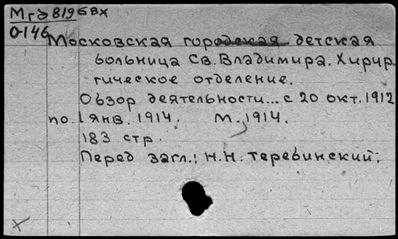 Мгд 8196вх
О-146
Московская городская детская
больница Св. Владимира. Хирур
гическое отделение.
Обзор деятельности... с 20 окт. 1912
по 1 янв. 1914. М. 1914.
183 стр.
Перед загл.: Н.Н. Теребинский;